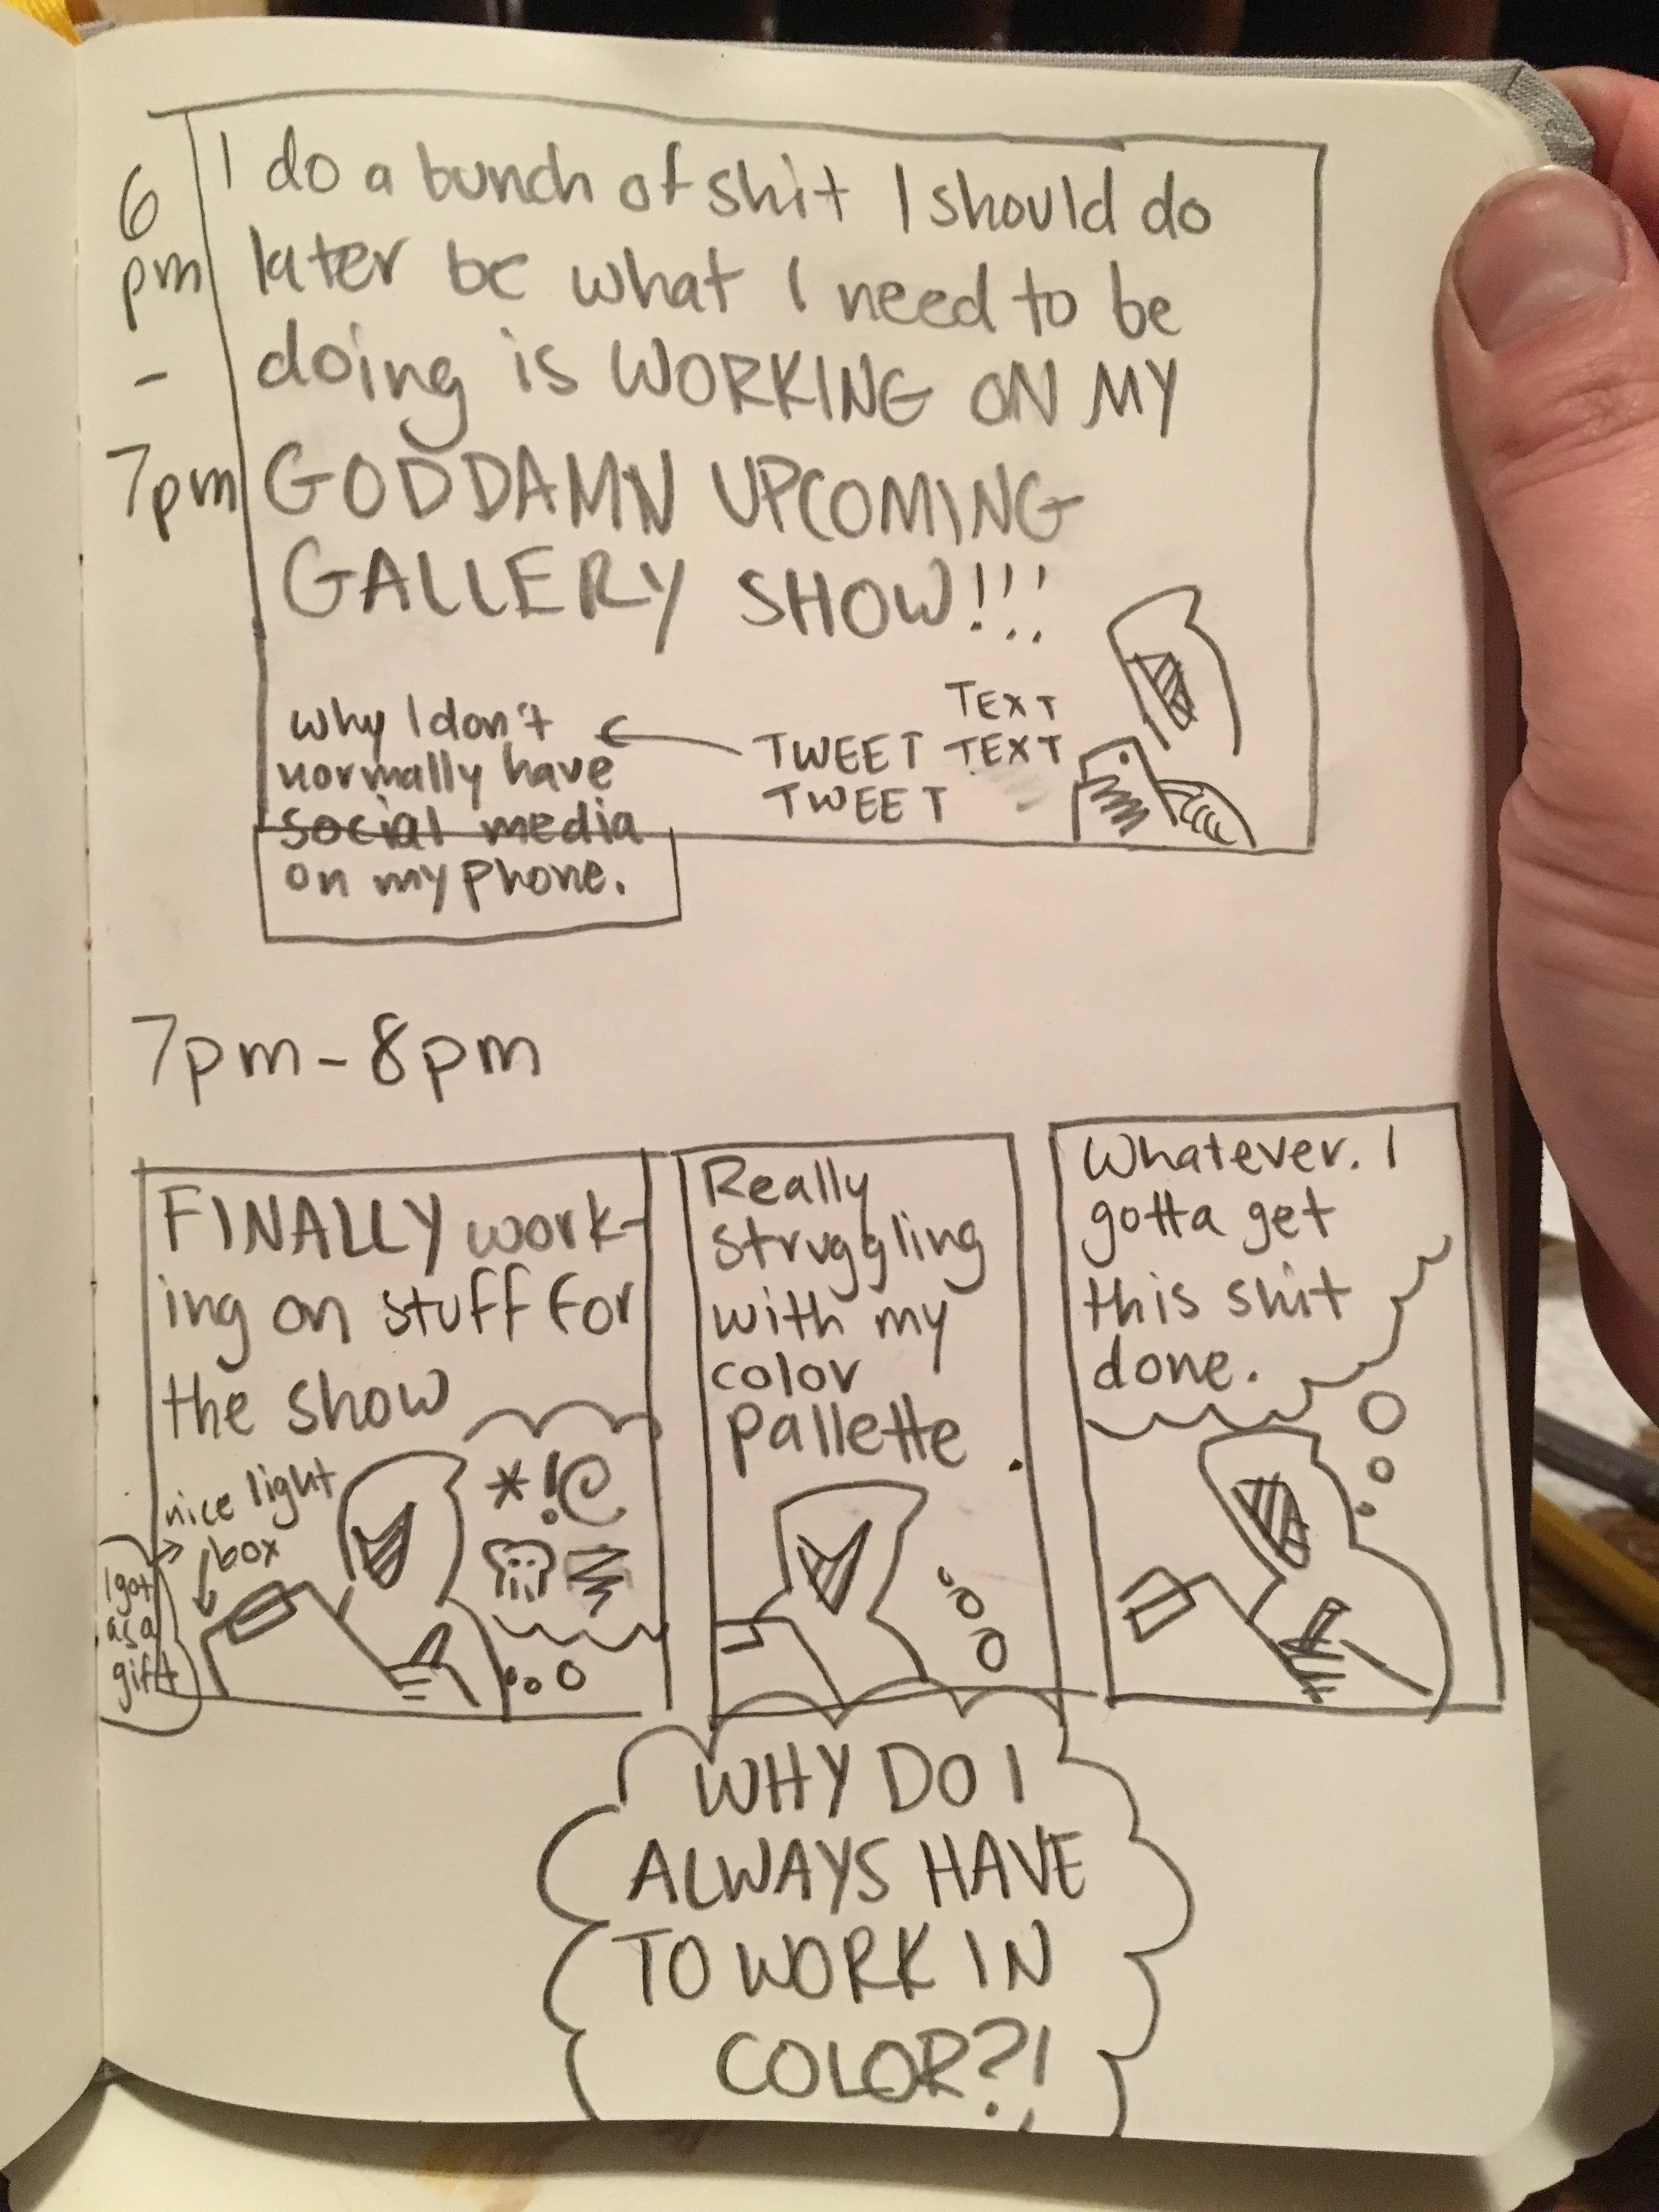 6
pm
-
7pm
I do a bunch of shit I should do
later bc what I need to be
doing is WORKING ON MY
GODDAMN UPCOMING
GALLERY SHOW!!!
TEXT
TWEET TEXT
TWEET
why I don't
normally have
social media
on my phone.
7pm-8pm
FINALLY work-
ing on stuff for
the show
nice light
box
I got
as a
gift
*!@
Really
struggling
with my
color
pallette.
WHY DO I
ALWAYS HAVE
TO WORK IN
COLOR?!
Whatever. I
gotta get
this shit
done.